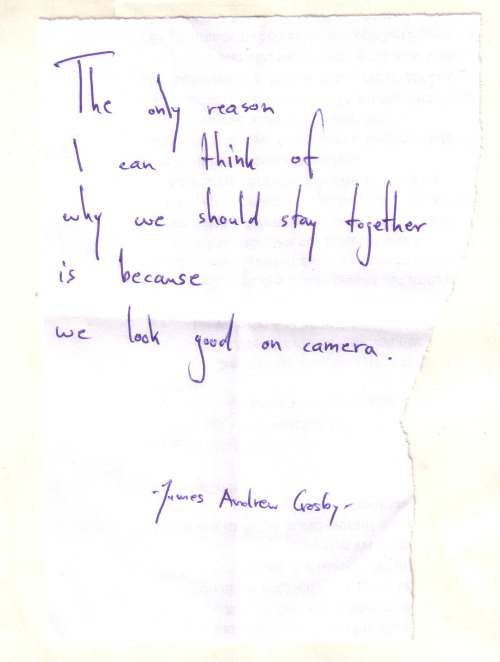 The only reason
I can think of
why we should stay together
is because
we look good on camera.
-James Andrew Crosby-